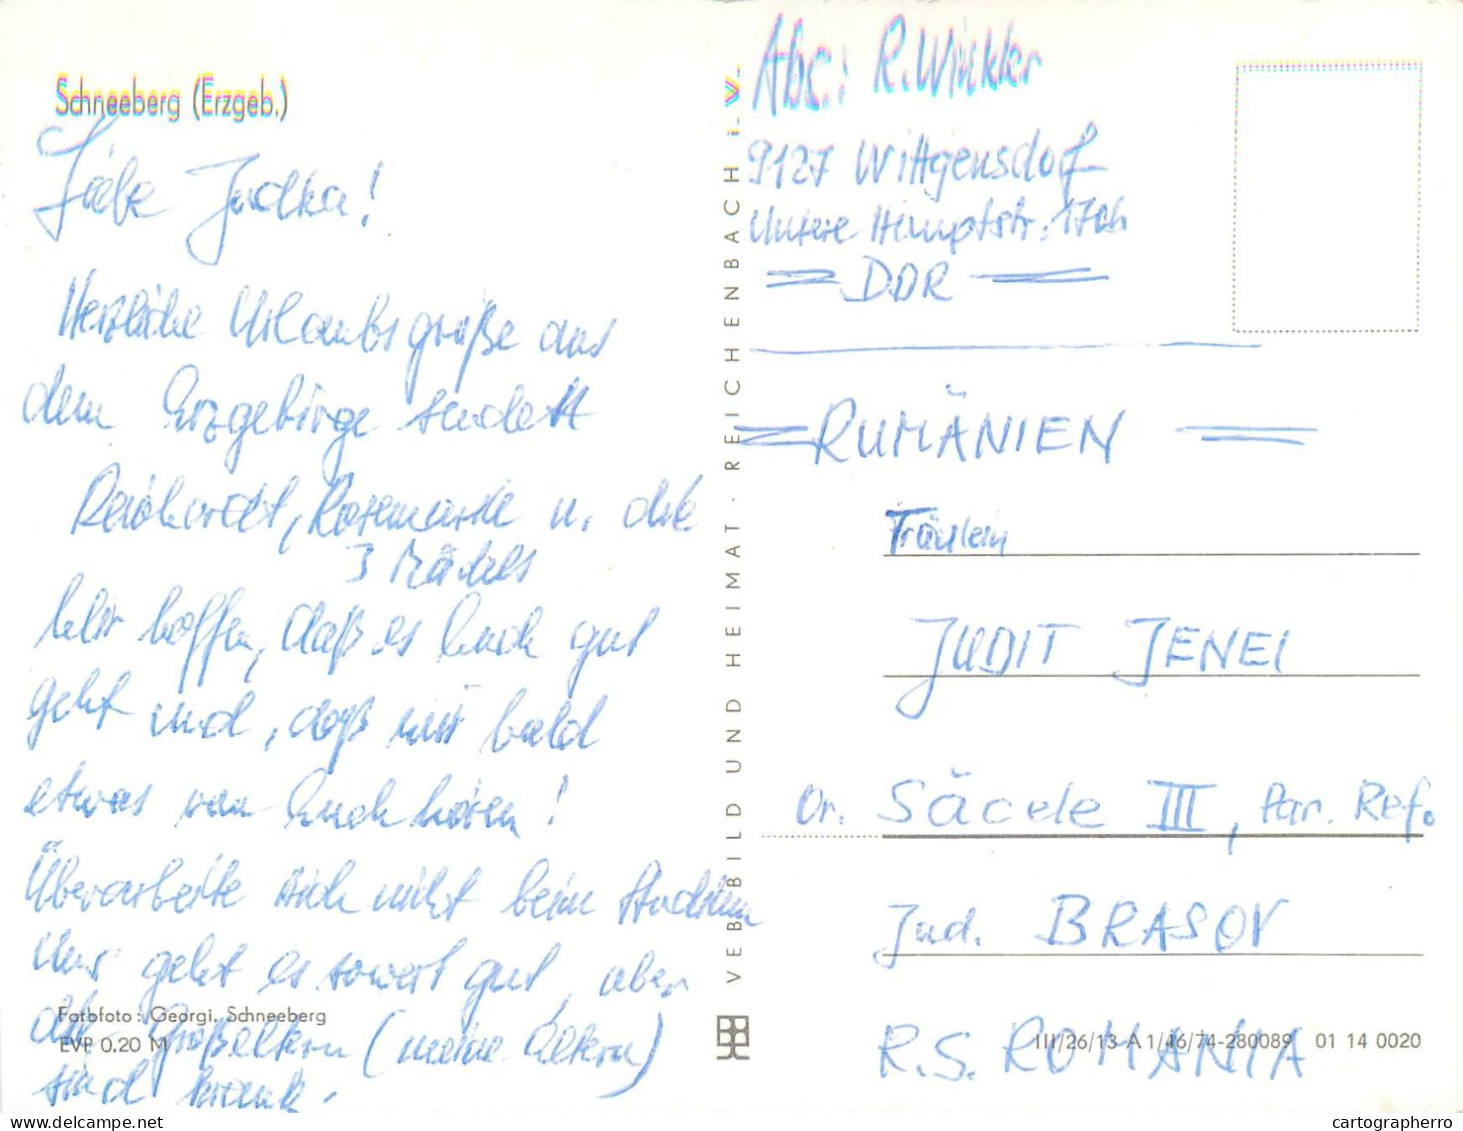 Schneeberg (Erzgeb.)
Liebe Judka!
Herzliche Urlaubsgrüße aus
dem Erzgebirge sendet
Reinhardt, Rosemarie u. die
3 Mädels
Wir hoffen, daß es Euch gut
geht und, daß wir bald
etwas von Euch hören!
Überarbeite dich nicht beim Studium
Uns geht es soweit gut, aber
die Großeltern (meine Eltern)
sind krank.
Farbfoto: Georgi, Schneeberg
EVP 0.20 M
VEB BILD UND HEIMAT · REICHENBACH i. V.
Abs.: R. Winkler
9127 Wittgensdorf
Untere Hauptstr.
DDR
RUMÄNIEN
Fräulein
JUDIT JENEI
Or. Săcele III, Par. Ref.
Jud. BRASOV
R.S. ROMANIA
III/26/13 A 1/46/74-280089 01 14 0020
cartographerro